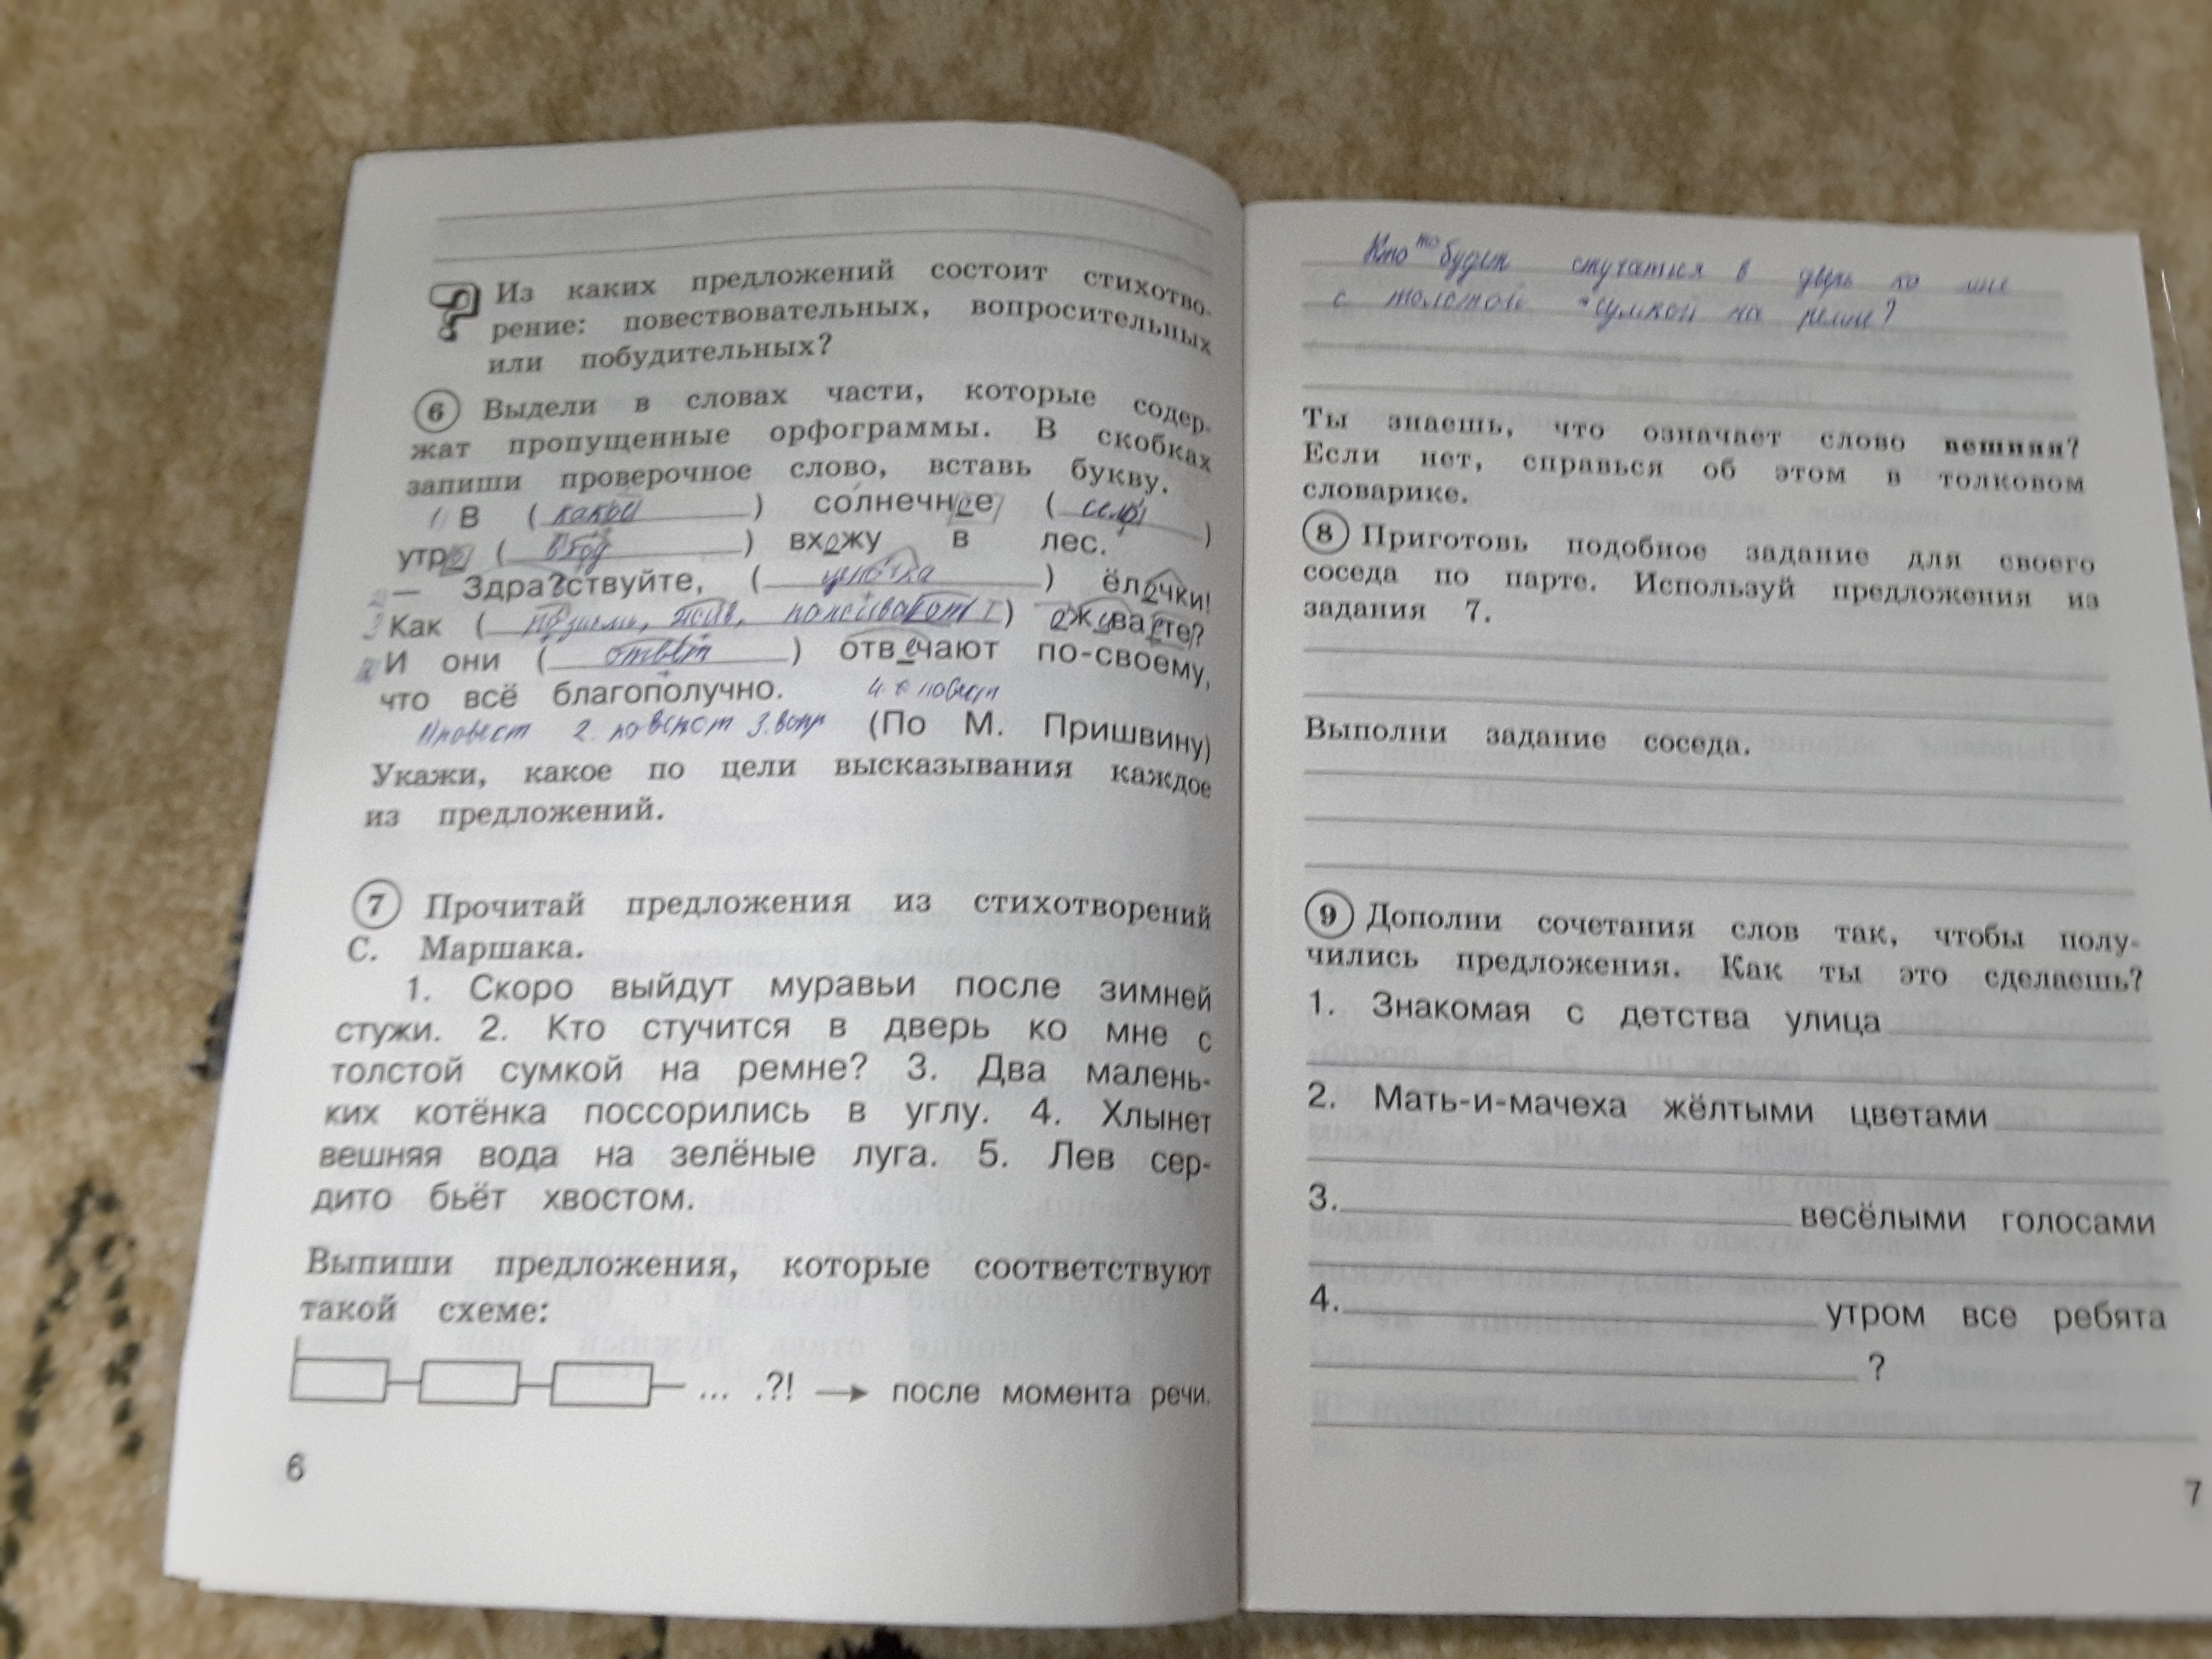 Из каких предложений состоит стихотво-
рение: повествовательных, вопросительных
или побудительных?
6 Выдели в словах части, которые содер-
жат пропущенные орфограммы. В скобках
запиши проверочное слово, вставь букву.
1) В (какой) солнечное ( )
утро (вход) вхожу в лес.
— Здра?ствуйте, (цепочка) ёлочки!
3 Как ( ) оживаете?
И они (ответ) отвечают по-своему,
что всё благополучно. 4. повест
1) повест 2. 3. вопр (По М. Пришвину)
Укажи, какое по цели высказывания каждое
из предложений.
7 Прочитай предложения из стихотворений
С. Маршака.
1. Скоро выйдут муравьи после зимней
стужи. 2. Кто стучится в дверь ко мне с
толстой сумкой на ремне? 3. Два малень-
ких котёнка поссорились в углу. 4. Хлынет
вешняя вода на зелёные луга. 5. Лев сер-
дито бьёт хвостом.
Выпиши предложения, которые соответствуют
такой схеме:
... .?! → после момента речи.
6
Кто то будет стучаться в дверь ко мне
с толстой сумкой на ремне?
Ты знаешь, что означает слово вешняя?
Если нет, справься об этом в толковом
словарике.
8 Приготовь подобное задание для своего
соседа по парте. Используй предложения из
задания 7.
Выполни задание соседа.
9 Дополни сочетания слов так, чтобы полу-
чились предложения. Как ты это сделаешь?
1. Знакомая с детства улица
2. Мать-и-мачеха жёлтыми цветами
3. весёлыми голосами
4. утром все ребята
?
7